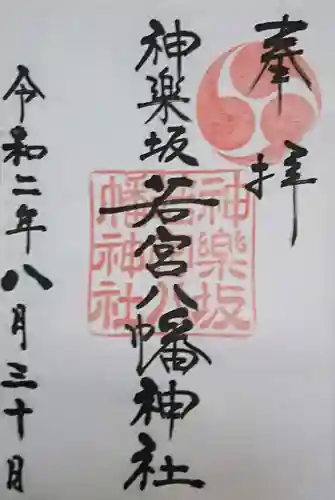 奉拝
神楽坂若宮八幡神社
令和二年八月三十月
神楽坂
若宮八
幡神社